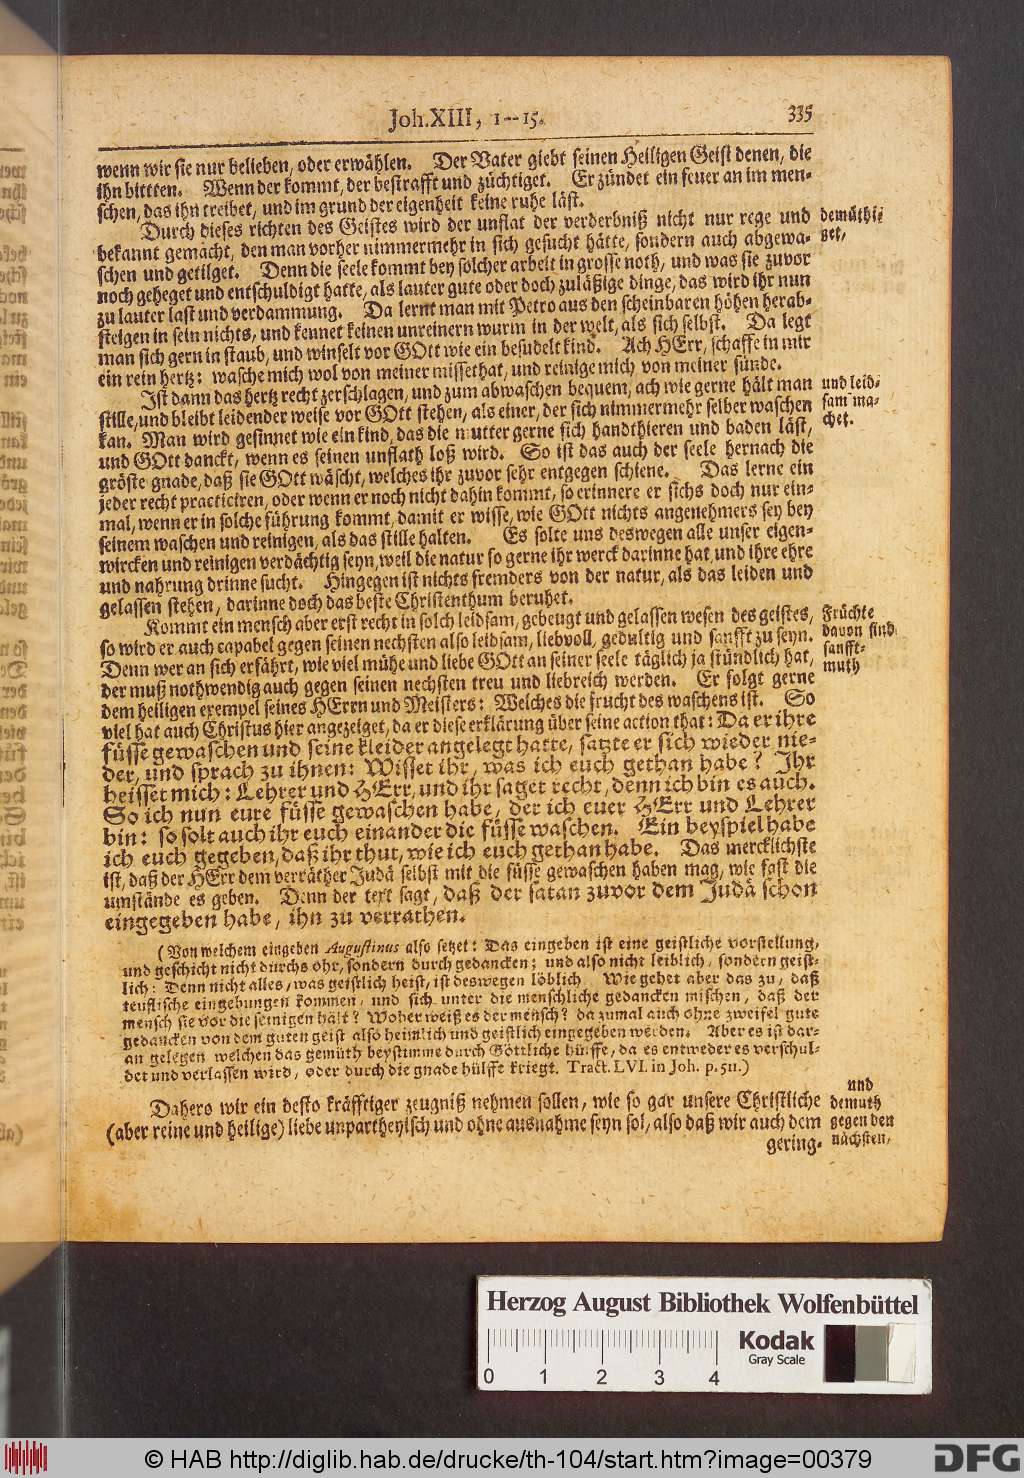 Joh. XIII, 1--15.
335
wenn wir sie nur belieben, oder erwählen. Der Vater giebt seinen Heiligen Geist denen, die
ihn bittten. Wenn der kommt, der bestrafft und züchtiget. Er zündet ein feuer an im men-
schen, das ihn treibet, und im grund der eigenheit keine ruhe läst.
Durch dieses richten des Geistes wird der unflat der verderbniß nicht nur rege und
demüthi-
get,
bekannt gemacht, den man vorher nimmermehr in sich gesucht hätte, sondern auch abgewa-
schen und getilget. Denn die seele kommt bey solcher arbeit in grosse noth, und was sie zuvor
noch geheget und entschuldigt hatte, als lauter gute oder doch zuläßige dinge, das wird ihr nun
zu lauter last und verdammung. Da lernt man mit Petro aus den scheinbaren höhen herab-
steigen in sein nichts, und kennet keinen unreinern wurm in der welt, als sich selbst. Da legt
man sich gern in staub, und winselt vor GOtt wie ein besudelt kind. Ach HErr, schaffe in mir
ein rein hertz: wasche mich wol von meiner missethat, und reinige mich von meiner sünde.
Ist dann das hertz recht zerschlagen, und zum abwaschen bequem, ach wie gerne hält man
und leid-
sam ma-
chet.
stille, und bleibt leidender weise vor GOtt stehen, als einer, der sich nimmermehr selber waschen
kan. Man wird gesinnet wie ein kind, das die mutter gerne sich handthieren und baden läst,
und GOtt danckt, wenn es seinen unflath loß wird. So ist das auch der seele hernach die
gröste gnade, daß sie GOtt wäscht, welches ihr zuvor sehr entgegen schiene. Das lerne ein
jeder recht practiciren, oder wenn er noch nicht dahin kommt, so erinnere er sichs doch nur ein-
mal, wenn er in solche führung kommt, damit er wisse, wie GOtt nichts angenehmers sey bey
seinem waschen und reinigen, als das stille halten. Es solte uns deswegen alle unser eigen-
wircken und reinigen verdächtig seyn, weil die natur so gerne ihr werck darinne hat, und ihre ehre
und nahrung drinne sucht. Hingegen ist nichts fremders von der natur, als das leiden und
gelassen stehen, darinne doch das beste Christenthum beruhet.
Kommt ein mensch aber erst recht in solch leidsam, gebeugt und gelassen wesen des geistes,
Früchte
davon sind
sanfft-
muth
so wird er auch capabel gegen seinen nechsten also leidsam, liebvoll, gedultig und sanfft zu seyn.
Denn wer an sich erfährt, wie viel mühe und liebe GOtt an seiner seele täglich ja stündlich hat,
der muß nothwendig auch gegen seinen nechsten treu und liebreich werden. Er folgt gerne
dem heiligen exempel seines HErrn und Meisters: Welches die frucht des waschens ist. So
viel hat auch Christus hier angezeiget, da er diese erklärung über seine action that: Da er ihre
füsse gewaschen und seine kleider angelegt hatte, satzte er sich wieder nie-
der, und sprach zu ihnen: Wisset ihr, was ich euch gethan habe? Ihr
heisset mich: Lehrer und HErr, und ihr saget recht, denn ich bin es auch.
So ich nun eure füsse gewaschen habe, der ich euer HErr und Lehrer
bin: so solt auch ihr euch einander die füsse waschen. Ein beyspiel habe
ich euch gegeben, daß ihr thut, wie ich euch gethan habe. Das mercklichste
ist, daß der HErr dem verräther Judä selbst mit die füsse gewaschen haben mag, wie fast die
umstände es geben. Denn der text sagt, daß der satan zuvor dem Judä schon
eingegeben habe, ihn zu verrathen.
(Von welchem eingeben Augustinus also setzet: Das eingeben ist eine geistliche vorstellung,
und geschicht nicht durchs ohr, sondern durch gedancken; und also nicht leiblich, sondern geist-
lich: Denn nicht alles, was geistlich heist, ist deswegen löblich Wie gehet aber das zu, daß
teuflische eingebungen kommen, und sich unter die menschliche gedancken mischen, daß der
mensch sie vor die seinigen hält? Woher weiß es der mensch? da zumal auch ohne zweifel gute
gedancken von dem guten geist also heimlich und geistlich eingegeben werden. Aber es ist dar-
an gelegen welchen das gemüth beystimme durch Göttliche hülffe, da es entweder es verschul-
det und verlassen wird, oder durch die gnade hülffe kriegt. Tract. LVI. in Joh. p. 511.)
Dahero wir ein desto kräfftiger zeugniß nehmen sollen, wie so gar unsere Christliche
und
demuth
gegen den
nächsten,
(aber reine und heilige) liebe unpartheyisch und ohne ausnahme seyn sol, also daß wir auch dem
gering-
Herzog August Bibliothek Wolfenbüttel
Kodak
Gray Scale
0 1 2 3 4
© HAB http://diglib.hab.de/drucke/th-104/start.htm?image=00379
DFG